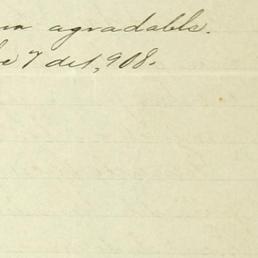 agradable.
7 del, 908.